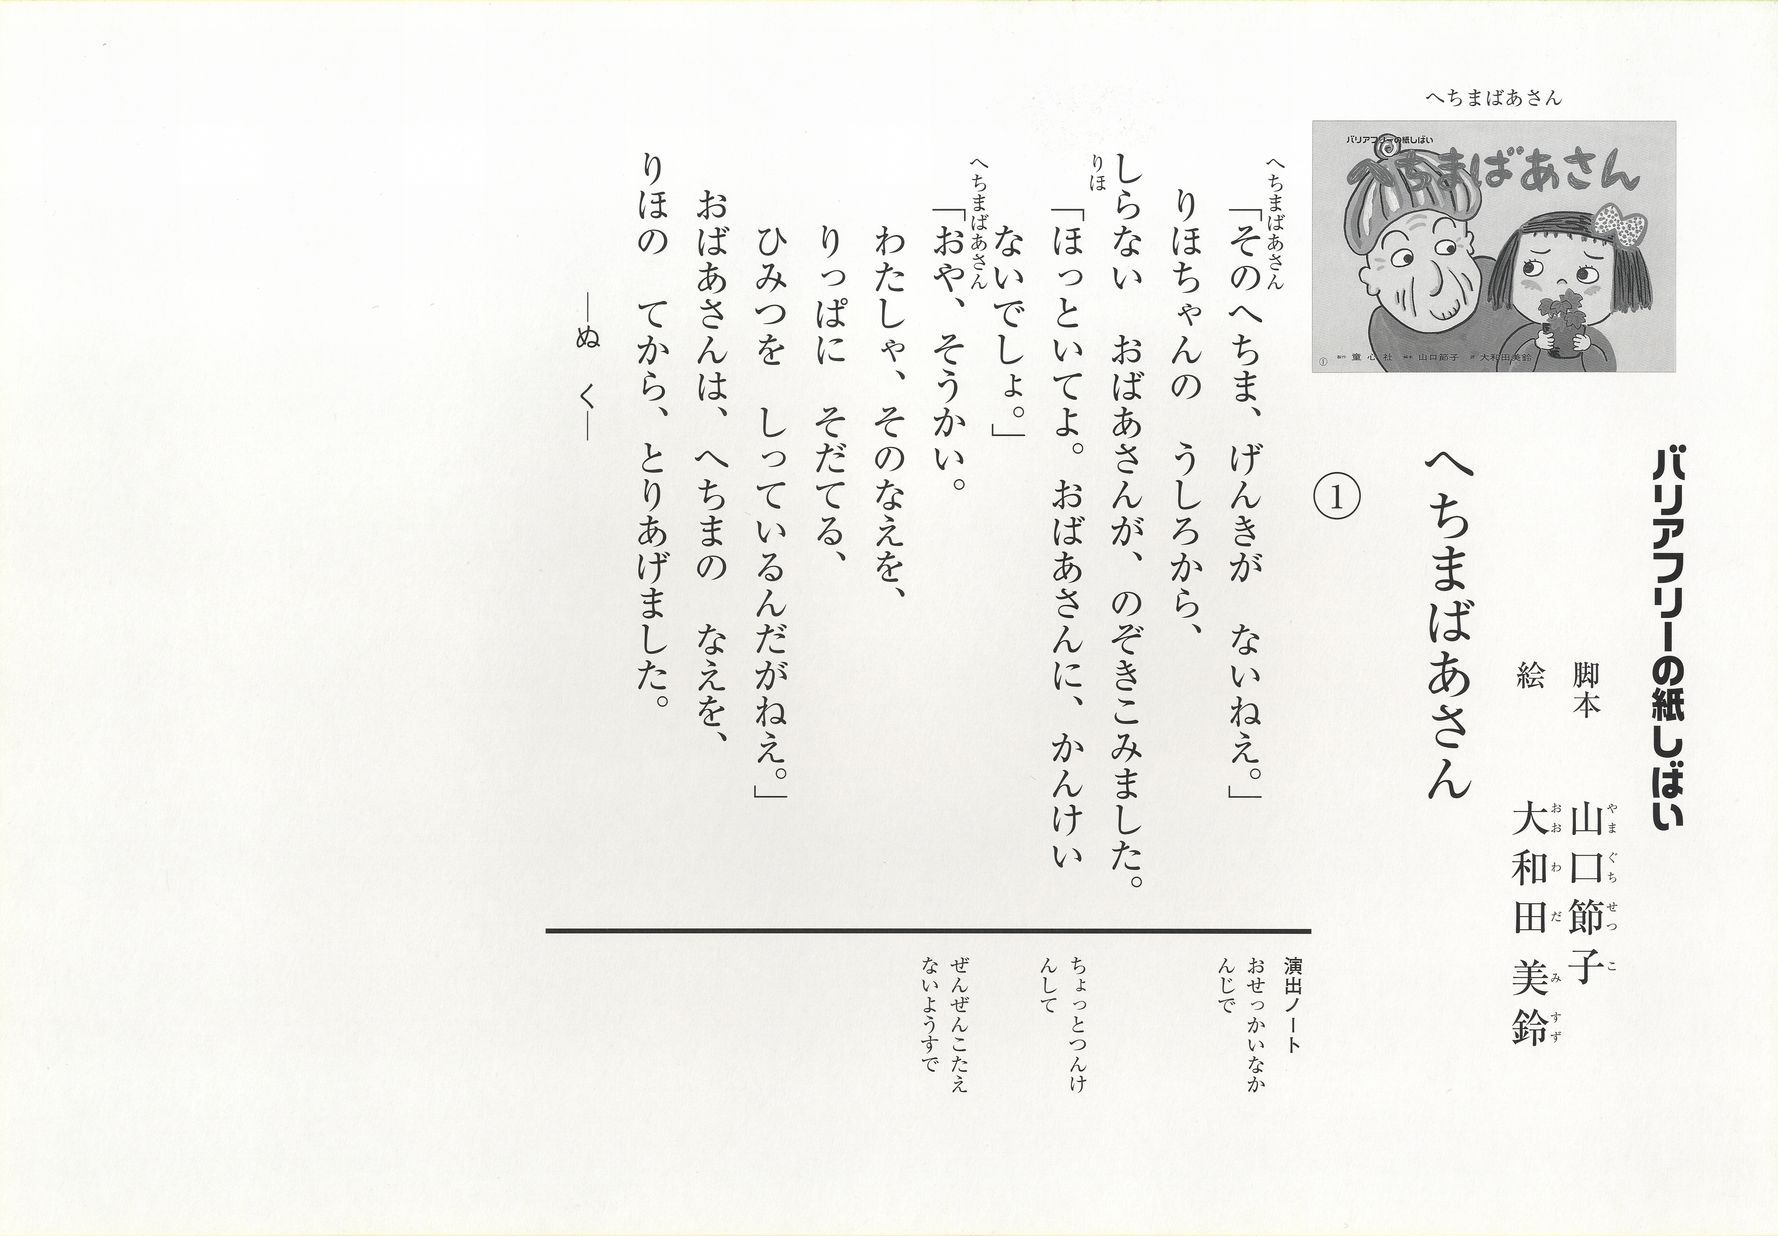 へちまばあさん
バリアフリーの紙しばい
へちまばあさん
① 製作 童心社 脚本 山口節子 絵 大和田美鈴
バリアフリーの紙しばい
脚本 山口節子
やまぐちせつこ
絵 大和田美鈴
おおわだみすず
へちまばあさん
①
へちまばあさん
「そのへちま、げんきが ないねえ。」
りほちゃんの うしろから、
しらない おばあさんが、のぞきこみました。
りほ
「ほっといてよ。おばあさんに、かんけい
ないでしょ。」
へちまばあさん
「おや、そうかい。
わたしゃ、そのなえを、
りっぱに そだてる、
ひみつを しっているんだがねえ。」
おばあさんは、へちまの なえを、
りほの てから、とりあげました。
―ぬ く―
演出ノート
おせっかいなか
んじで
ちょっとつんけ
んして
ぜんぜんこたえ
ないようすで